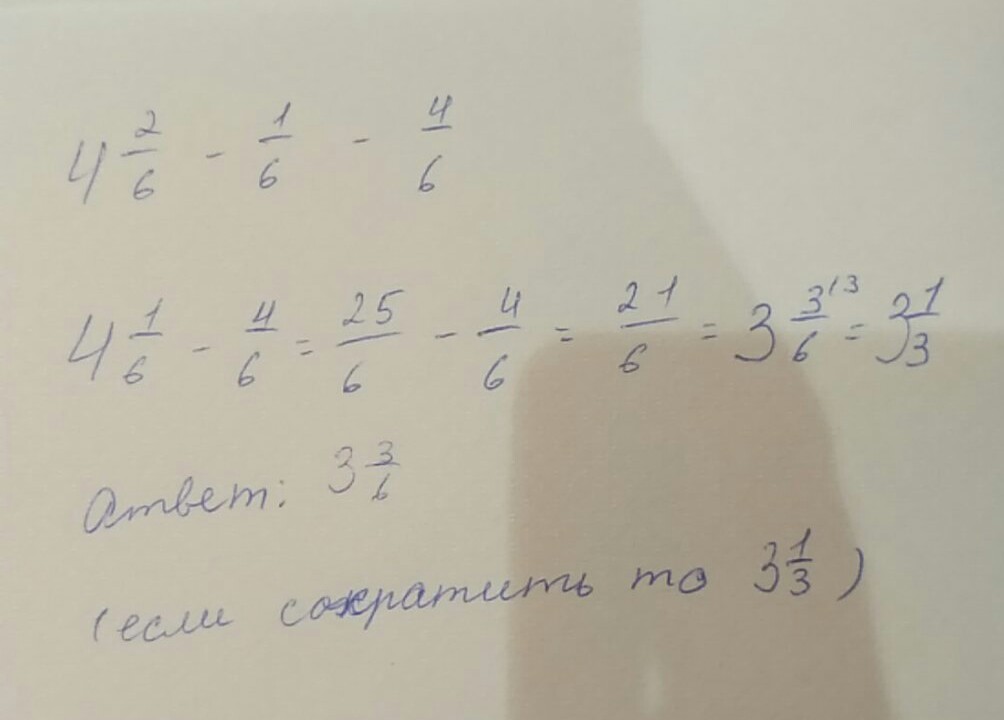 4 2/6 - 1/6 - 4/6
4 1/6 - 4/6 = 25/6 - 4/6 = 21/6 = 3 3/6 ^{13} = 3 1/3
Ответ: 3 3/6
(если сократить то 3 1/3)